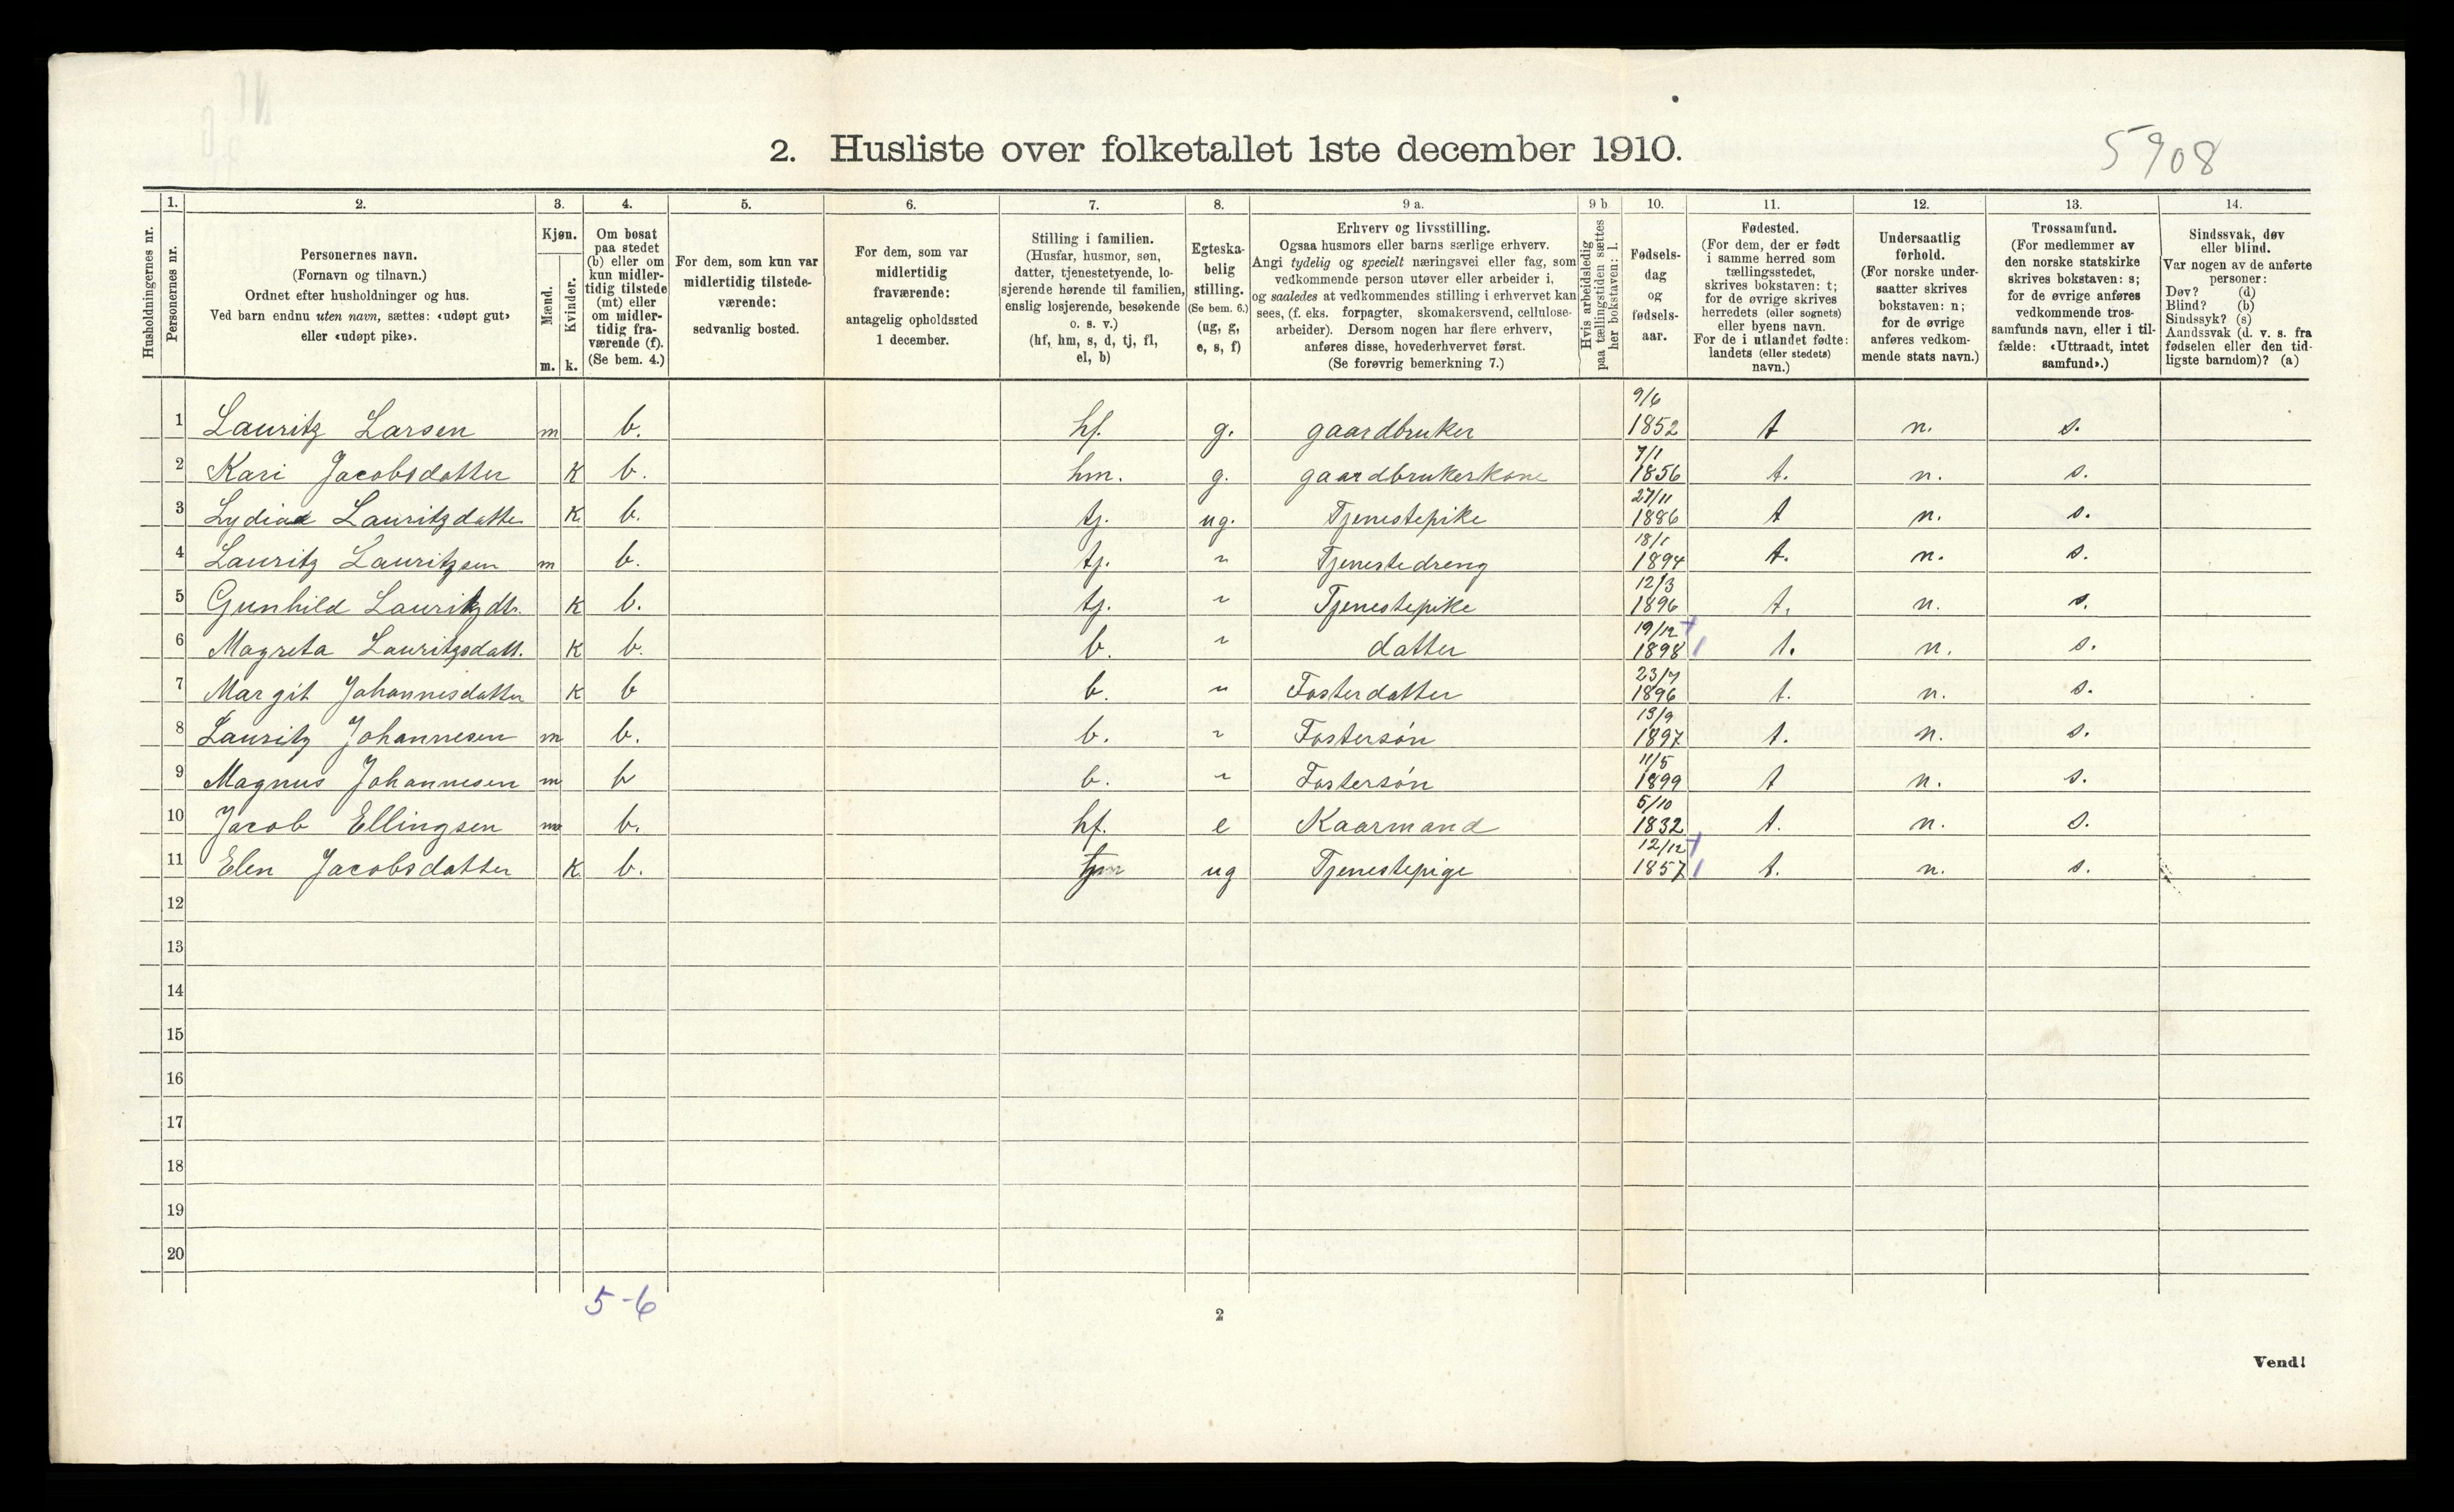 2. Husliste over folketallet 1ste december 1910.
5908
Husholdningernes nr.
1.
Personernes nr.
2.
Personernes navn.
(Fornavn og tilnavn.)
Ordnet efter husholdninger og hus.
Ved barn endnu uten navn, sættes: «udøpt gut»
eller «udøpt pike».
3.
Kjøn.
Mænd.
Kvinder.
m. k.
4.
Om bosat
paa stedet
(b) eller om
kun midler-
tidig tilstede
(mt) eller
om midler-
tidig fra-
værende (f).
(Se bem. 4.)
5.
For dem, som kun var
midlertidig tilstede-
værende:
sedvanlig bosted.
6.
For dem, som var
midlertidig
fraværende:
antagelig opholdssted
1 december.
7.
Stilling i familien.
(Husfar, husmor, søn,
datter, tjenestetyende, lo-
sjerende hørende til familien,
enslig losjerende, besøkende
o. s. v.)
(hf, hm, s, d, tj, fl,
el, b)
8.
Egteska-
belig
stilling.
(Se bem. 6.)
(ug, g,
e, s, f)
9 a.
Erhverv og livsstilling.
Ogsaa husmors eller barns særlige erhverv.
Angi tydelig og specielt næringsvei eller fag, som
vedkommende person utøver eller arbeider i,
og saaledes at vedkommendes stilling i erhvervet kan
sees, (f. eks. forpagter, skomakersvend, cellulose-
arbeider). Dersom nogen har flere erhverv,
anføres disse, hovederhvervet først.
(Se forøvrig bemerkning 7.)
9 b
Hvis arbeidsledig
paa tællingstiden sættes
her bokstaven: l.
10.
Fødsels-
dag
og
fødsels-
aar.
11.
Fødested.
(For dem, der er født
i samme herred som
tællingsstedet,
skrives bokstaven: t;
for de øvrige skrives
herredets (eller sognets)
eller byens navn.
For de i utlandet fødte:
landets (eller stedets)
navn.)
12.
Undersaatlig
forhold.
(For norske under-
saatter skrives
bokstaven: n;
for de øvrige
anføres vedkom-
mende stats navn.)
13.
Trossamfund.
(For medlemmer av
den norske statskirke
skrives bokstaven: s;
for de øvrige anføres
vedkommende tros-
samfunds navn, eller i til-
fælde: «Uttraadt, intet
samfund».)
14.
Sindssvak, døv
eller blind.
Var nogen av de anførte
personer:
Døv? (d)
Blind? (b)
Sindssyk? (s)
Aandssvak (d. v. s. fra
fødselen eller den tid-
ligste barndom)? (a)
1 Lauritz Larsen m b. hf. g. gaardbruker 9/6 1852 t n. s.
2 Kari Jacobsdatter K b. hm. g. gaardbrukerkone 7/1 1856 t. n. s.
3 Lydia Lauritzdatte K b. tj. ug. Tjenestepike 27/11 1886 t n. s.
4 Lauritz Lauritzsen m b. tj. " Tjenestedreng 18/1 1894 t. n. s.
5 Gunhild Lauritzdtr. K b. tj. " Tjenestepike 12/3 1896 t. n. s.
6 Magreta Lauritzsdatt. K b. b. " datter 19/12 1898 t. n. s.
7 Margit Johannesdatter K b b. " Fosterdatter 23/7 1896 t. n. s.
8 Lauritz Johannesen m b. b. " Fostersøn 13/9 1897 t. n. s.
9 Magnus Johannesen m b b. " Fostersøn 11/5 1899 t n. s.
10 Jacob Ellingsen m b. hf. e Kaarmand 5/10 1832 t. n. s.
11 Elen Jacobsdatter K b. ug Tjenestepige 12/12 1857 t. n. s.
12
13
14
15
16
17
18
19
20
5-6
2
Vend!